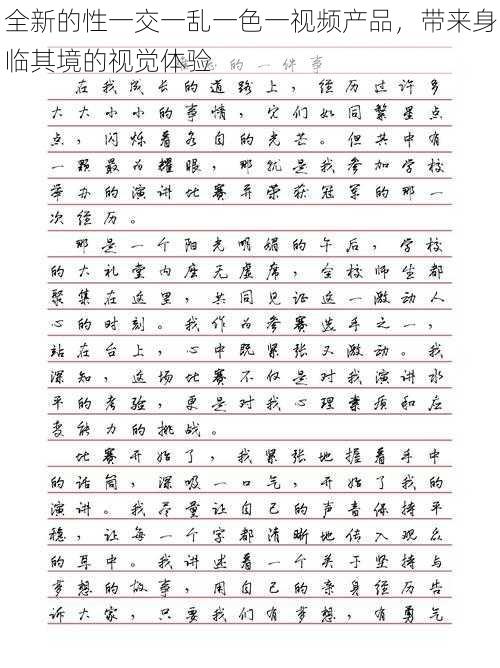 全新的性一交一乱一色一视频产品，带来身
临其境的视觉体验
的一件事
在我成长的道路上，经历过许多
大大小小的事情，它们如同繁星点
点，闪烁着各自的光芒。但其中有
一颗最为耀眼，那就是我参加学校
举办的演讲比赛并荣获冠军的那一
次经历。
那是一个阳光明媚的午后，学校
的大礼堂内座无虚席，全校师生都
聚集在这里，共同见证这一激动人
心的时刻。我作为参赛选手之一，
站在台上，心中既紧张又激动。我
深知，这场比赛不仅是对我演讲水
平的考验，更是对我心理素质和应
变能力的挑战。
比赛开始了，我紧张地握着手中
的话筒，深吸一口气，开始了我的
演讲。我尽量让自己的声音保持平
稳，让每一个字都清晰地传入观众
的耳中。我讲述着一个关于坚持与
梦想的故事，用自己的亲身经历告
诉大家，只要我们有梦想，有勇气